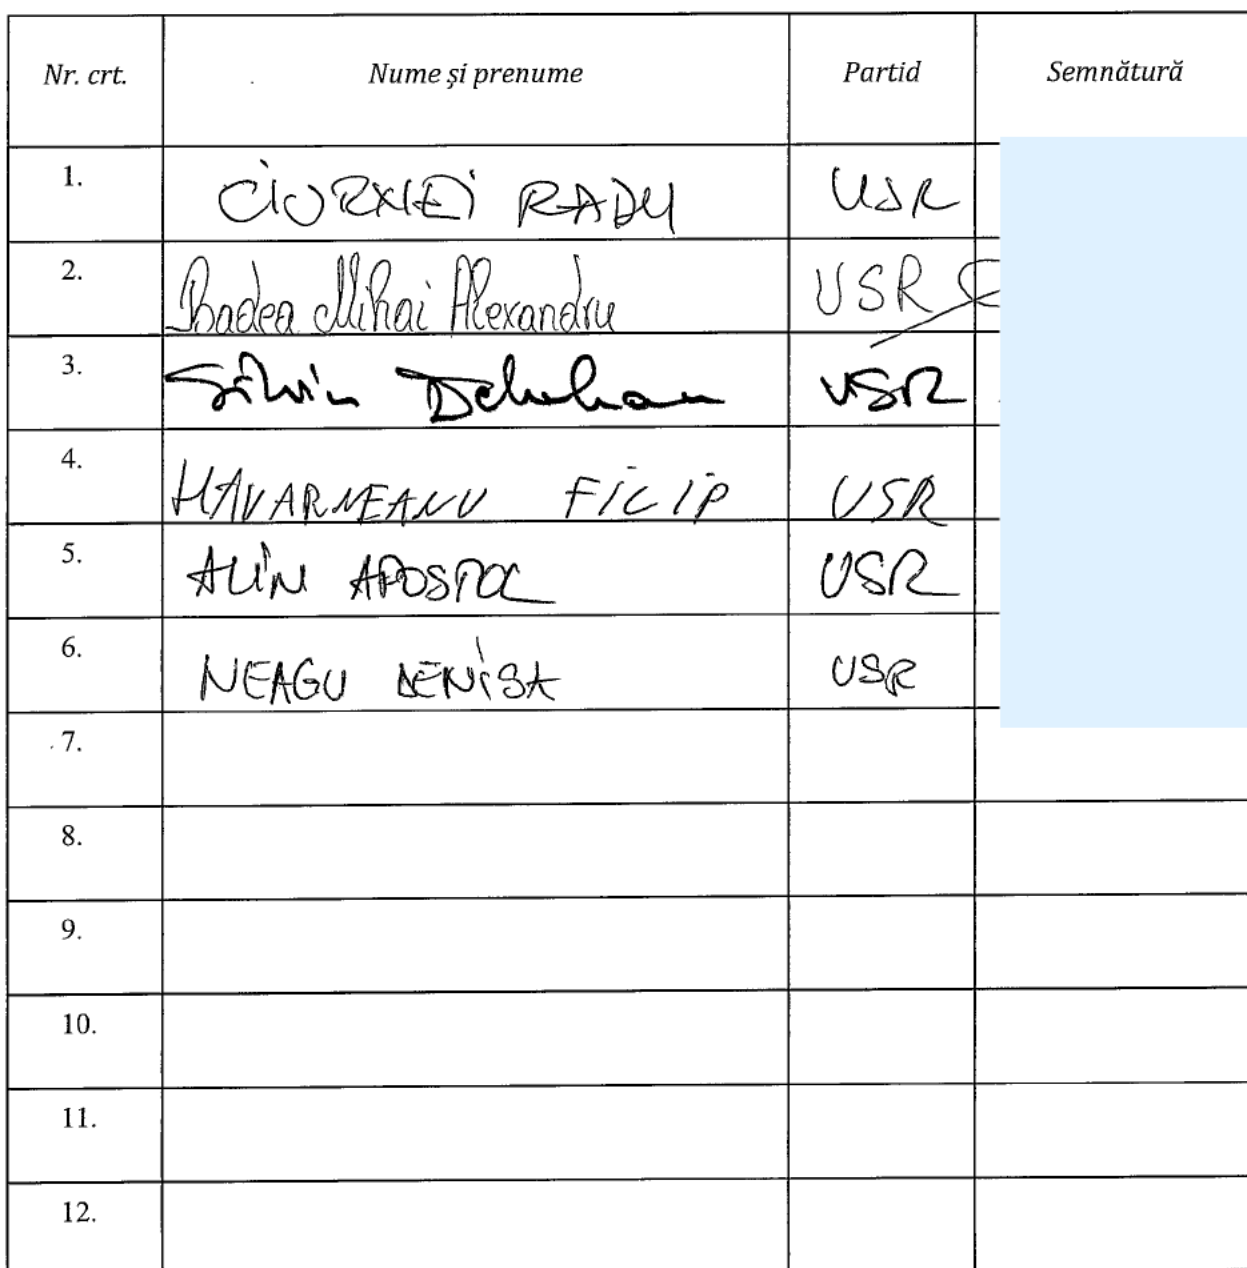 Nr. crt. Nume și prenume Partid Semnătură
1. RADU USR
2. Badea Mihai Alexandru USR
3. Silviu Dehelean USR
4. HAVARNEANU FILIP USR
5. ALIN APOSTOL USR
6. NEAGU DENISA USR
7.
8.
9.
10.
11.
12.